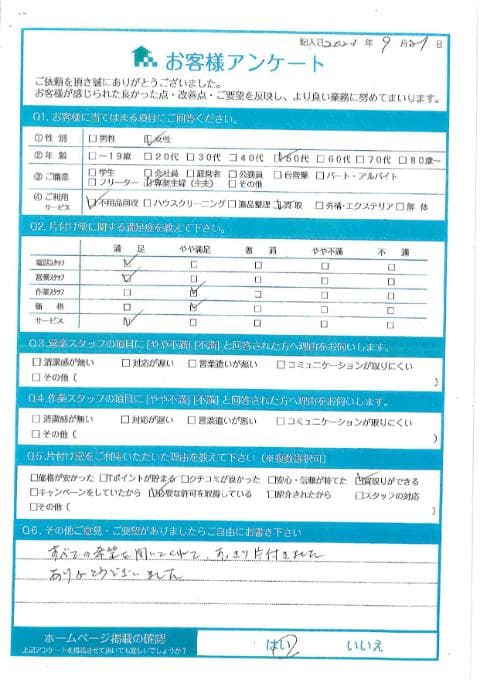 記入日 2023 年 9 月 21 日
お客様アンケート
ご依頼を頂き誠にありがとうございました。
お客様が感じられた良かった点・改善点・ご要望を反映し、より良い業務に努めてまいります。
Q1. お客様に当てはまる項目にご回答ください。
①性 別 □男性 ☑女性
②年 齢 □～19歳 □20代 □30代 □40代 ☑50代 □60代 □70代 □80歳～
③ご職業 □学生 □会社員 □経営者 □公務員 □自営業 □パート・アルバイト
□フリーター ☑専業主婦(主夫) □その他
④ご利用サービス ☑不用品回収 □ハウスクリーニング □遺品整理 ☑買取 □外構・エクステリア □解体
Q2. 片付け堂に関する満足度を教えて下さい。
満 足 やや満足 普 通 やや不満 不 満
電話スタッフ ☑ □ □ □ □
営業スタッフ ☑ □ □ □ □
作業スタッフ □ ☑ □ □ □
価 格 □ ☑ □ □ □
サービス ☑ □ □ □ □
Q3. 営業スタッフの項目に[やや不満][不満]と回答された方へ理由をお伺いします。
□清潔感が無い □対応が遅い □言葉遣いが悪い □コミュニケーションが取りにくい
□その他( )
Q4. 作業スタッフの項目に[やや不満][不満]と回答された方へ理由をお伺いします。
□清潔感が無い □対応が遅い □言葉遣いが悪い □コミュニケーションが取りにくい
□その他( )
Q5. 片付け堂をご利用いただいた理由を教えて下さい(※複数選択可)
□価格が安かった □Tポイントが貯まる □クチコミが良かった □安心・信頼が持てた ☑買取りができる
□キャンペーンをしていたから ☑必要な許可を取得している □紹介されたから □スタッフの対応
□その他( )
Q6. その他ご意見・ご要望がありましたらご自由にお書き下さい
すべての希望を聞いてくれて、あっさり片付きました
ありがとうございました
ホームページ掲載の確認
上記アンケートを掲載させて頂いても宜しいでしょうか?
はい いいえ